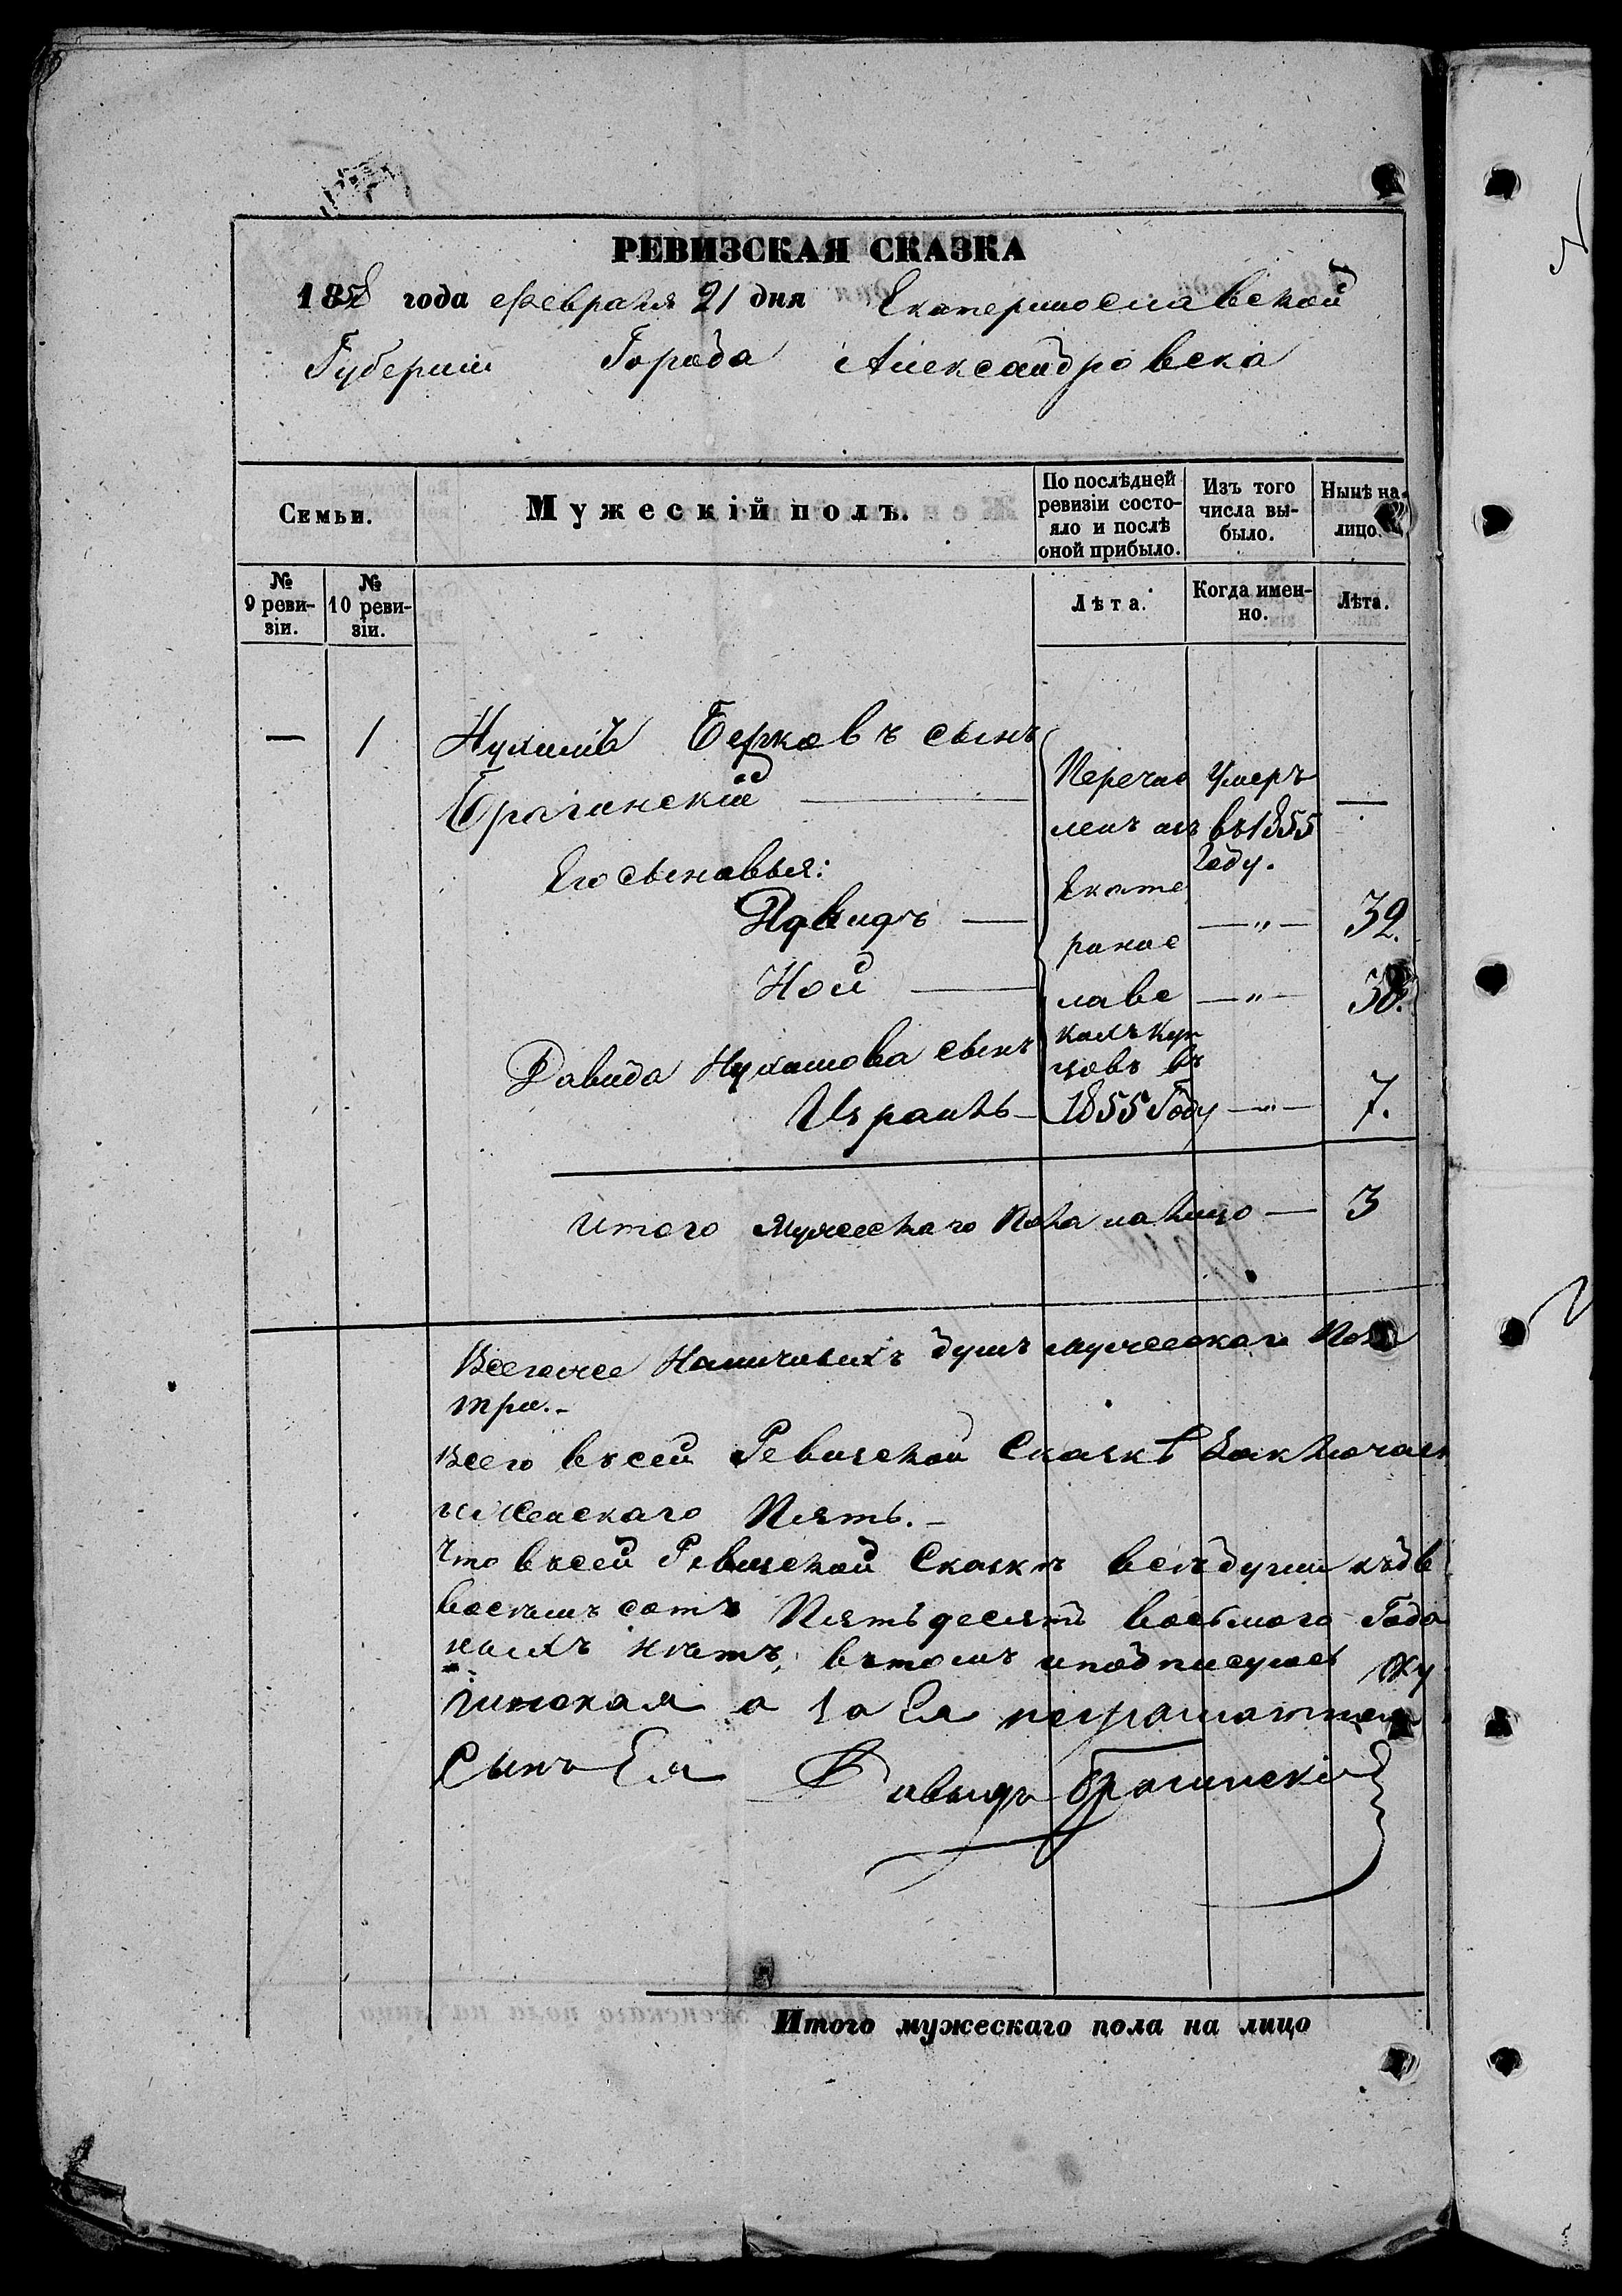 РЕВИЗСКАЯ СКАЗКА
1858 года Февраля 21 дня Екатеринославской
Губернии Города Александровска
Семьи.
Мужескій полъ.
По послѣдней ревизіи состо-
яло и послѣ
оной прибыло.
Изъ того
числа вы-
было.
Нынѣ на
лицо.
№
9 реви-
зіи.
№
10 реви-
зіи.
Лѣта.
Когда имен-
но.
Лѣта.
— 1 Нухимъ Берковъ сынъ
Брагинскій —
Перечис
ленъ изъ
Екате
ринос
лавс
кихъ куп
цовъ въ
1855 Году
Умеръ
въ 1855
Году.
—
Его сыновья:
Давидъ — —"— 32.
Ной — —"— 30.
Давида Нухимова сынъ
Израиль — —"— 7.
Итого Мужескаго Пола налицо — 3
Всего же Наличныхъ душъ мужескаго Пола
три.-
Всего в сей Ревизской Сказкѣ Заключает
женскаго Пять.-
Что в сей Ревизской Сказкѣ всѣ души
восемъ сотъ Пятьдесятъ восьмого Года
нихъ нетъ, въ томъ и подписуюсь
гинская а за Ея неграматная
Сынъ Ея Давыдъ Брагинскій
Итого мужескаго пола на лицо